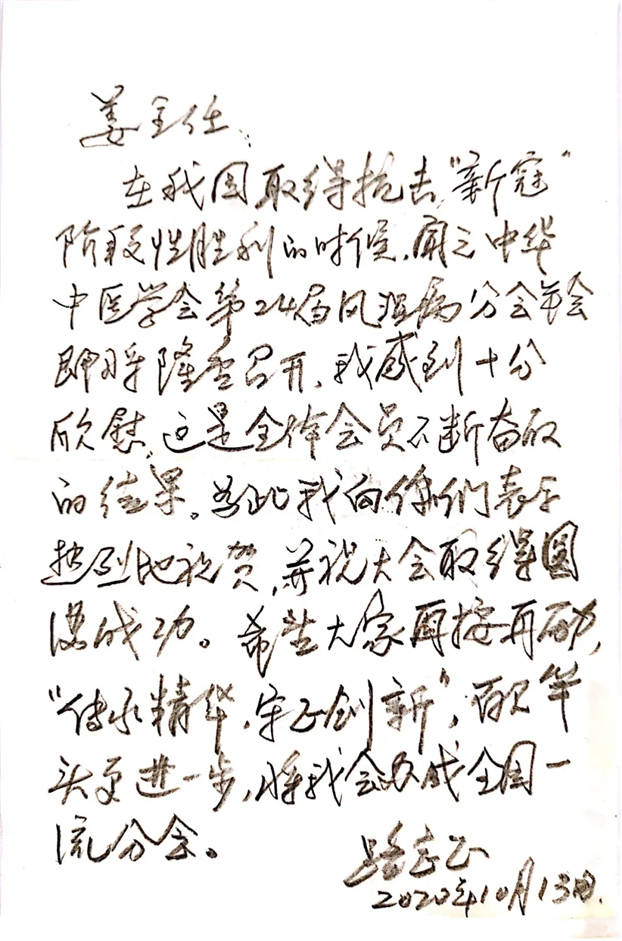 姜主任：
在我国取得抗击“新冠”
阶段性胜利的时候，闻之中华
中医学会第24届风湿病分会年会
即将隆重召开，我感到十分
欣慰，这是全体会员不断奋取
的结果。为此我向你们表示
热烈地祝贺，并祝大会取得圆
满成功。希望大家再接再励，
“传承精华，守正创新”，百尺竿
头更进一步，将我会办成全国一
流分会。
路志正
2020年10月13日.